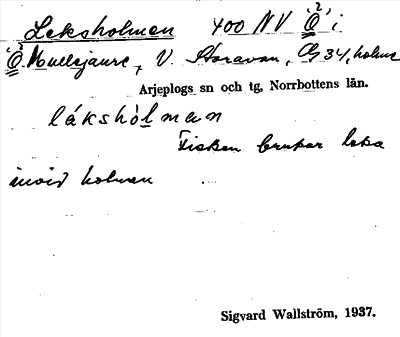 Leksholmen 400 NV Ö² i
Ö² Mullejaure, V. Storavan, Cg 34, holme
Arjeplogs sn och tg, Norrbottens län.
lákshòlmen
Fisken brukar leka
invid holmen
Sigvard Wallström, 1937.